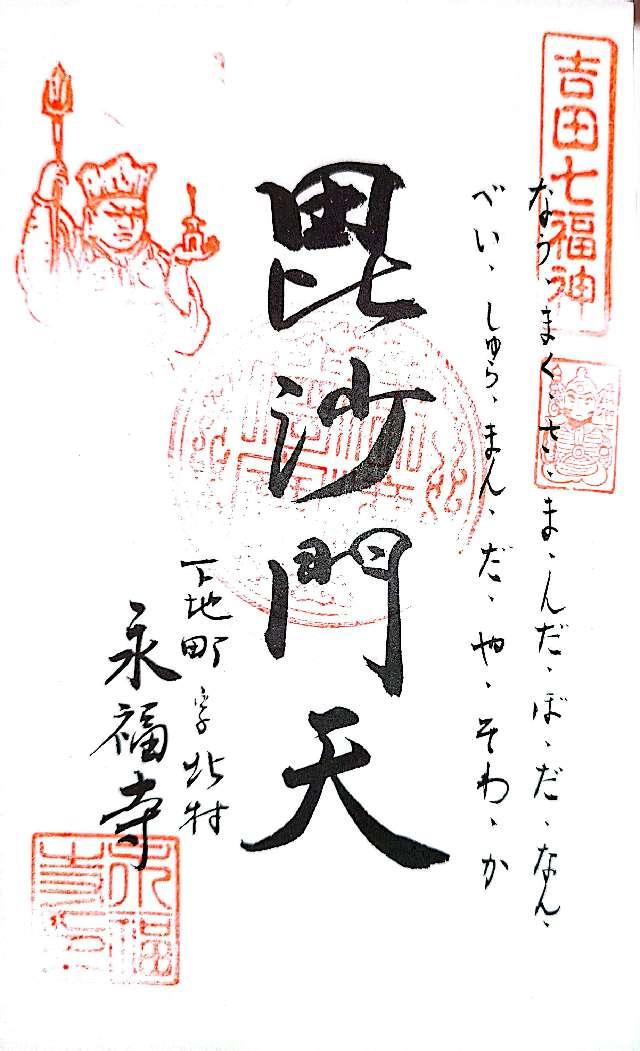 吉田七福神
なう、まく、さ、ま、んだ、ぼ、だ、なん、
べい、しゅら、まん、だ、や、そわ、か
毘沙門天
下地町字北村
永福寺
永福寺印